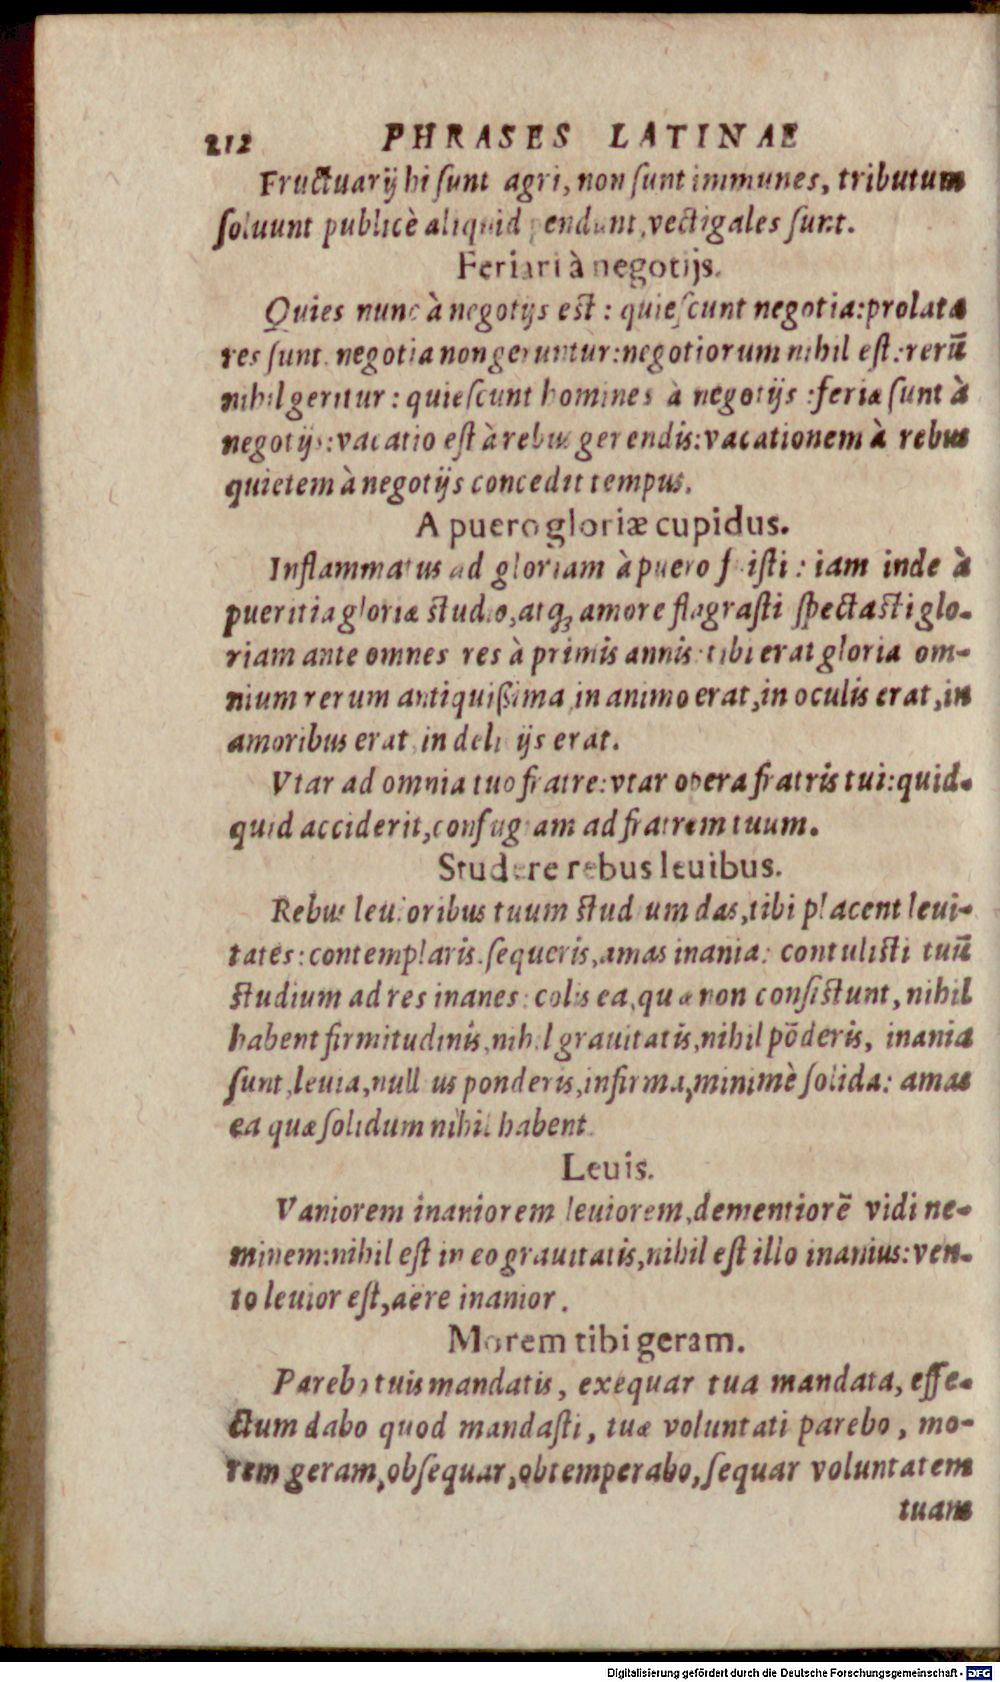 212 PHRASES LATINAE
Fructuarij hi sunt agri, non sunt immunes, tributum
soluunt publicè aliquid pendunt, vectigales sunt.
Feriari à negotijs.
Quies nunc à negotijs est: quiescunt negotia: prolata
res sunt. negotia non geruntur: negotiorum nihil est: rerū
nihil geritur: quiescunt homines à negotijs: feriæ sunt à
negotijs: vacatio est à rebus gerendis: vacationem à rebus
quietem à negotijs concedit tempus.
A puero gloriæ cupidus.
Inflammatus ad gloriam à puero fuisti: iam inde à
pueritia gloriæ studio, atq; amore flagrasti spectasti glo-
riam ante omnes res à primis annis: tibi erat gloria om-
nium rerum antiquißima in animo erat, in oculis erat, in
amoribus erat, in delitijs erat.
Vtar ad omnia tuo fratre: vtar opera fratris tui: quid-
quid acciderit, confugiam ad fratrem tuum.
Studere rebus leuibus.
Rebus leuioribus tuum studium das, tibi placent leui-
tates: contemplaris. sequeris, amas inania: contulisti tuū
studium ad res inanes: colis ea, quæ non consistunt, nihil
habent firmitudinis, nihil grauitatis, nihil pōderis, inania
sunt, leuia, nullius ponderis, infirma, minimè solida: amas
ea quæ solidum nihil habent.
Leuis.
Vaniorem inaniorem leuiorem, dementiorē vidi ne-
minem: nihil est in eo grauitatis, nihil est illo inanius: ven-
to leuior est, aere inanior.
Morem tibi geram.
Parebo tuis mandatis, exequar tua mandata, effe-
ctum dabo quod mandasti, tuæ voluntati parebo, mo-
rem geram, obsequar, obtemperabo, sequar voluntatem
tuam
Digitalisierung gefördert durch die Deutsche Forschungsgemeinschaft - DFG